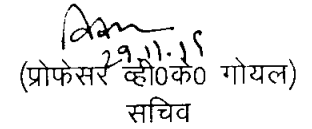 29.11.15
(प्रोफेसर व्ही0के0 गोयल)
सचिव